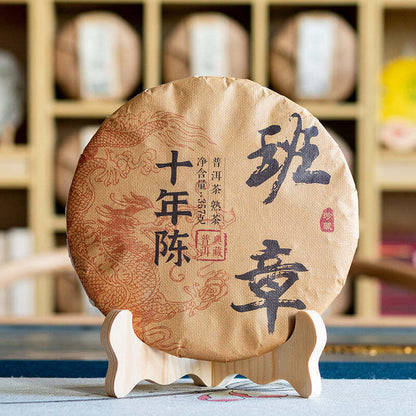 班章
普洱茶 熟茶
净含量:357克
十年陈
典藏
普洱
珍藏